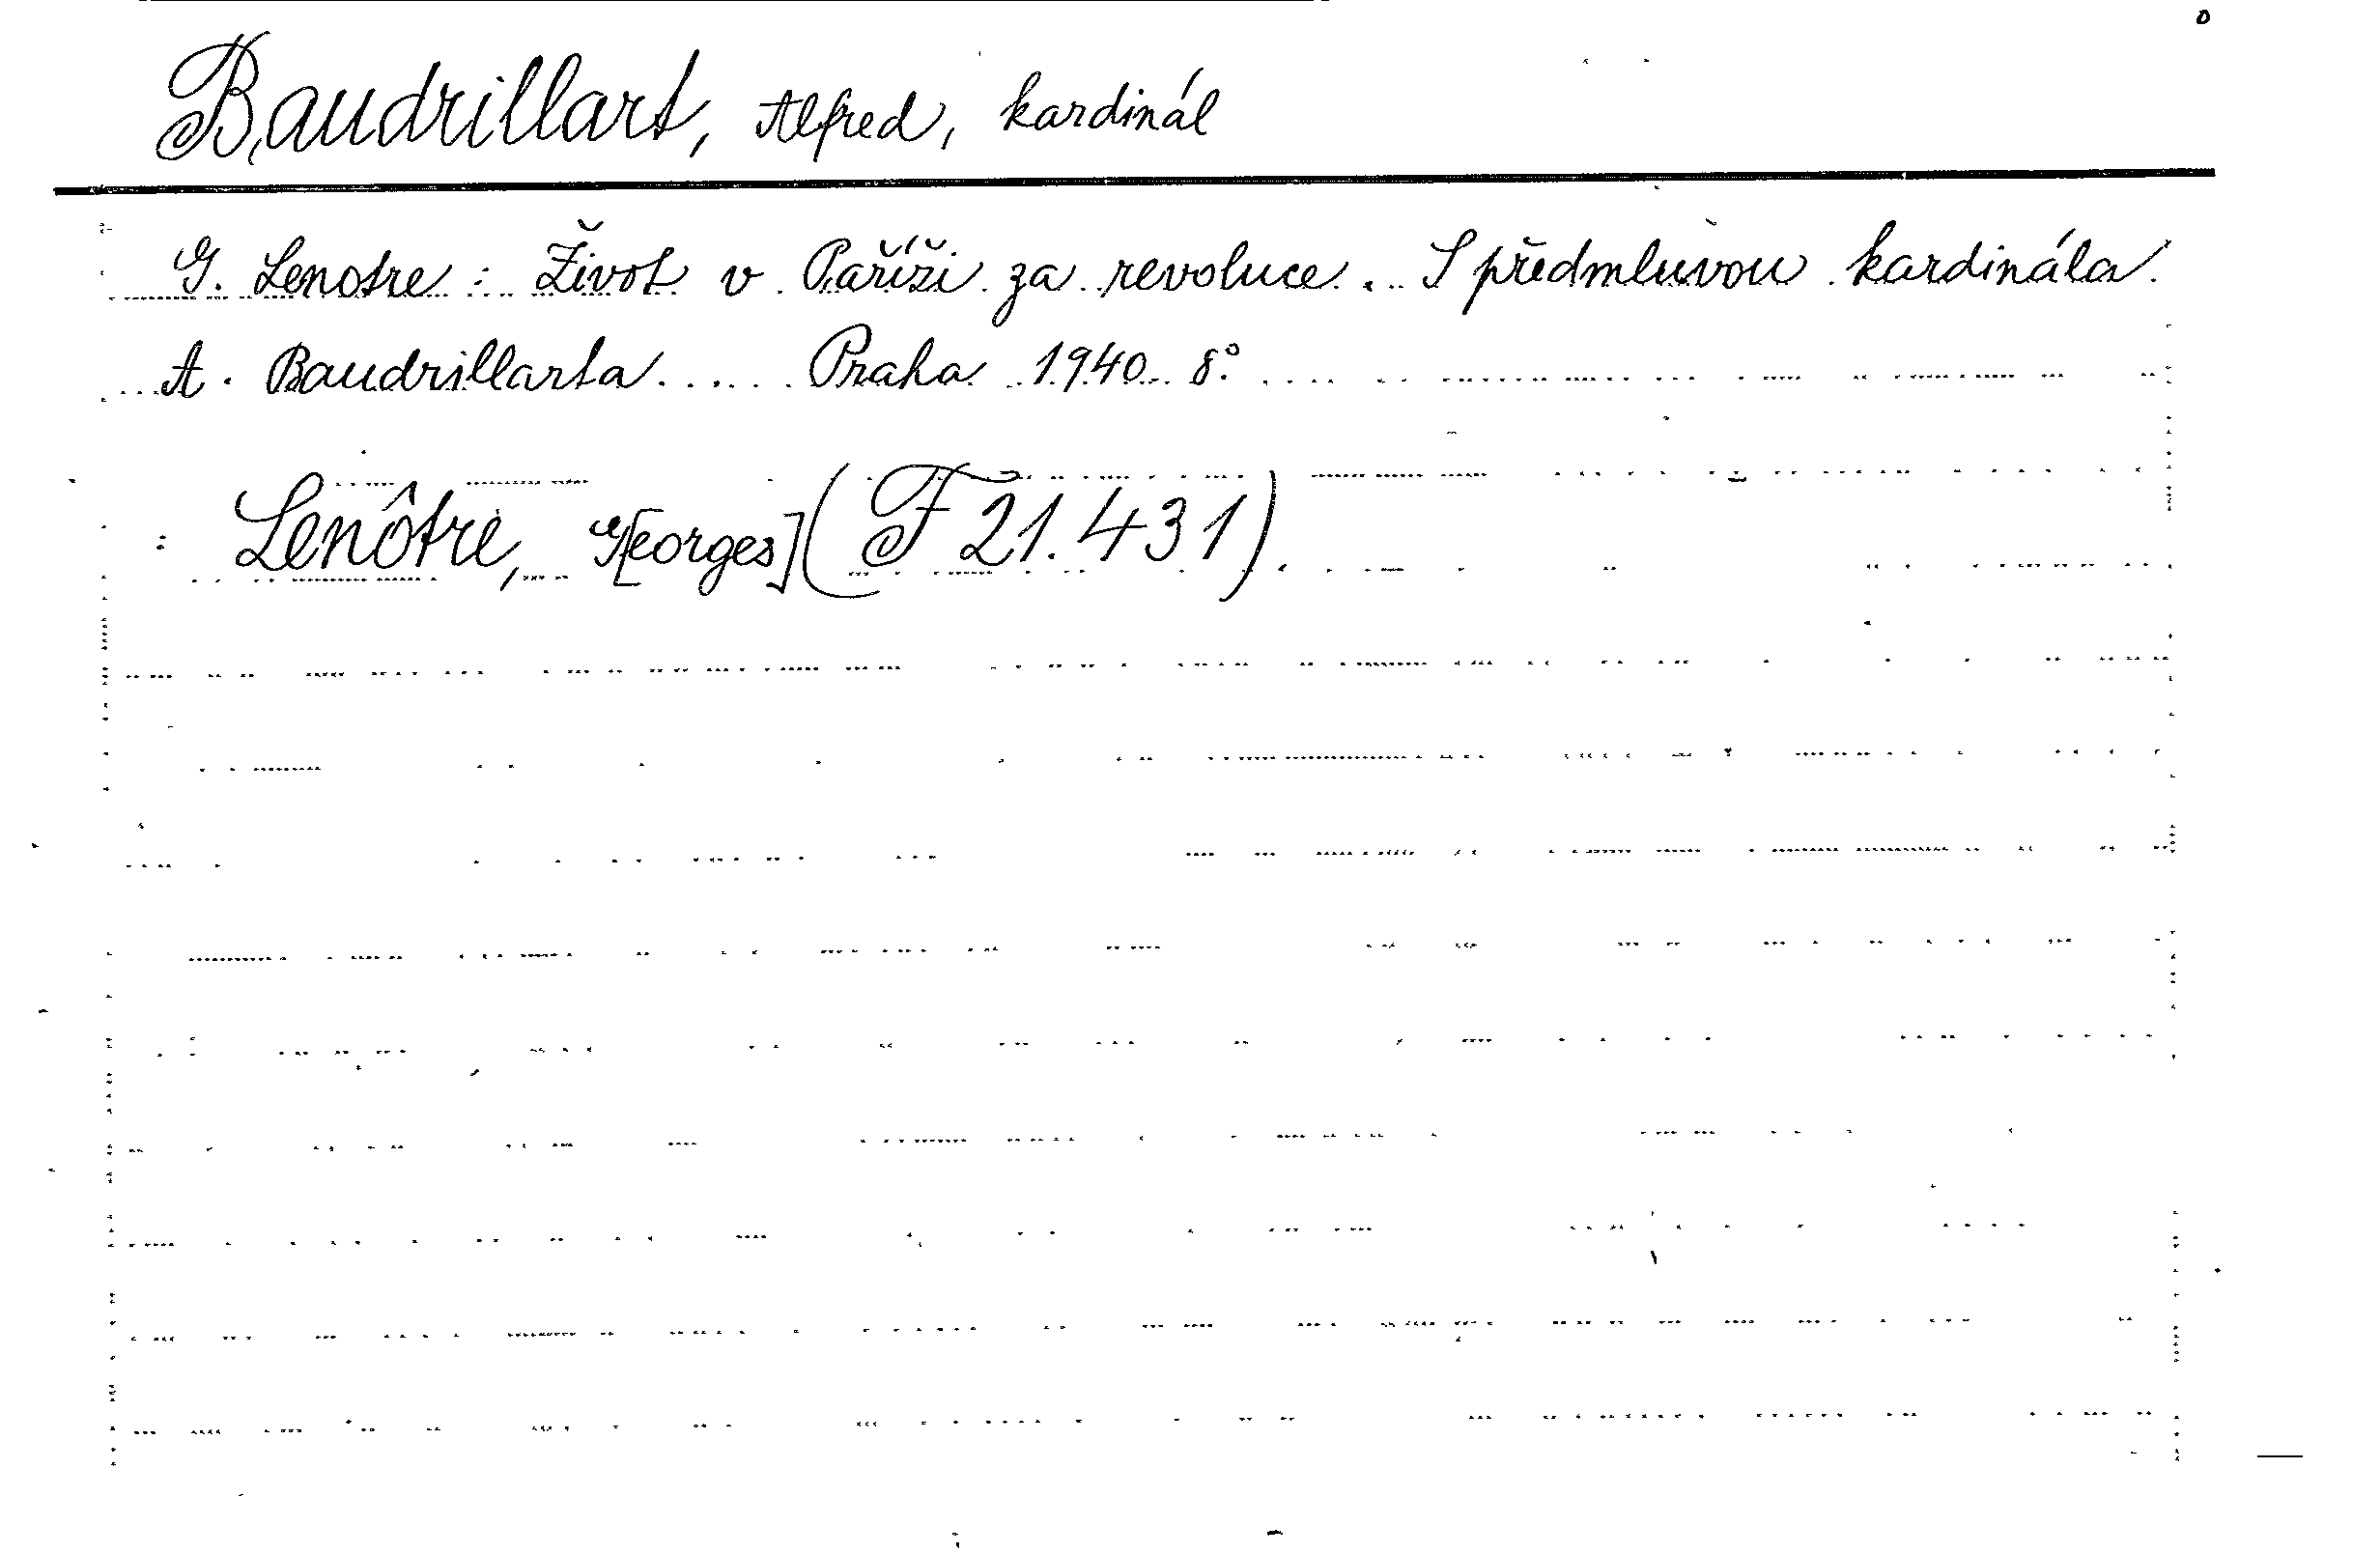 Baudrillart, Alfred, kardinál
G. Lenotre: Život v Paříži za revoluce. S předmluvou kardinála
A. Baudrillarta.... Praha 1940 8°
: Lenôtre, G[eorges] (F 21.431).